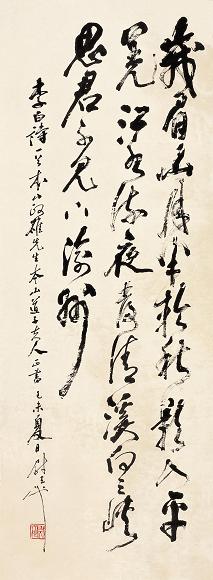 峩眉山月半輪秋影入平
羌江水流夜發清溪向三峽
思君不見下渝州
李白詩一首政雄先生本山道子夫人正書己未夏日